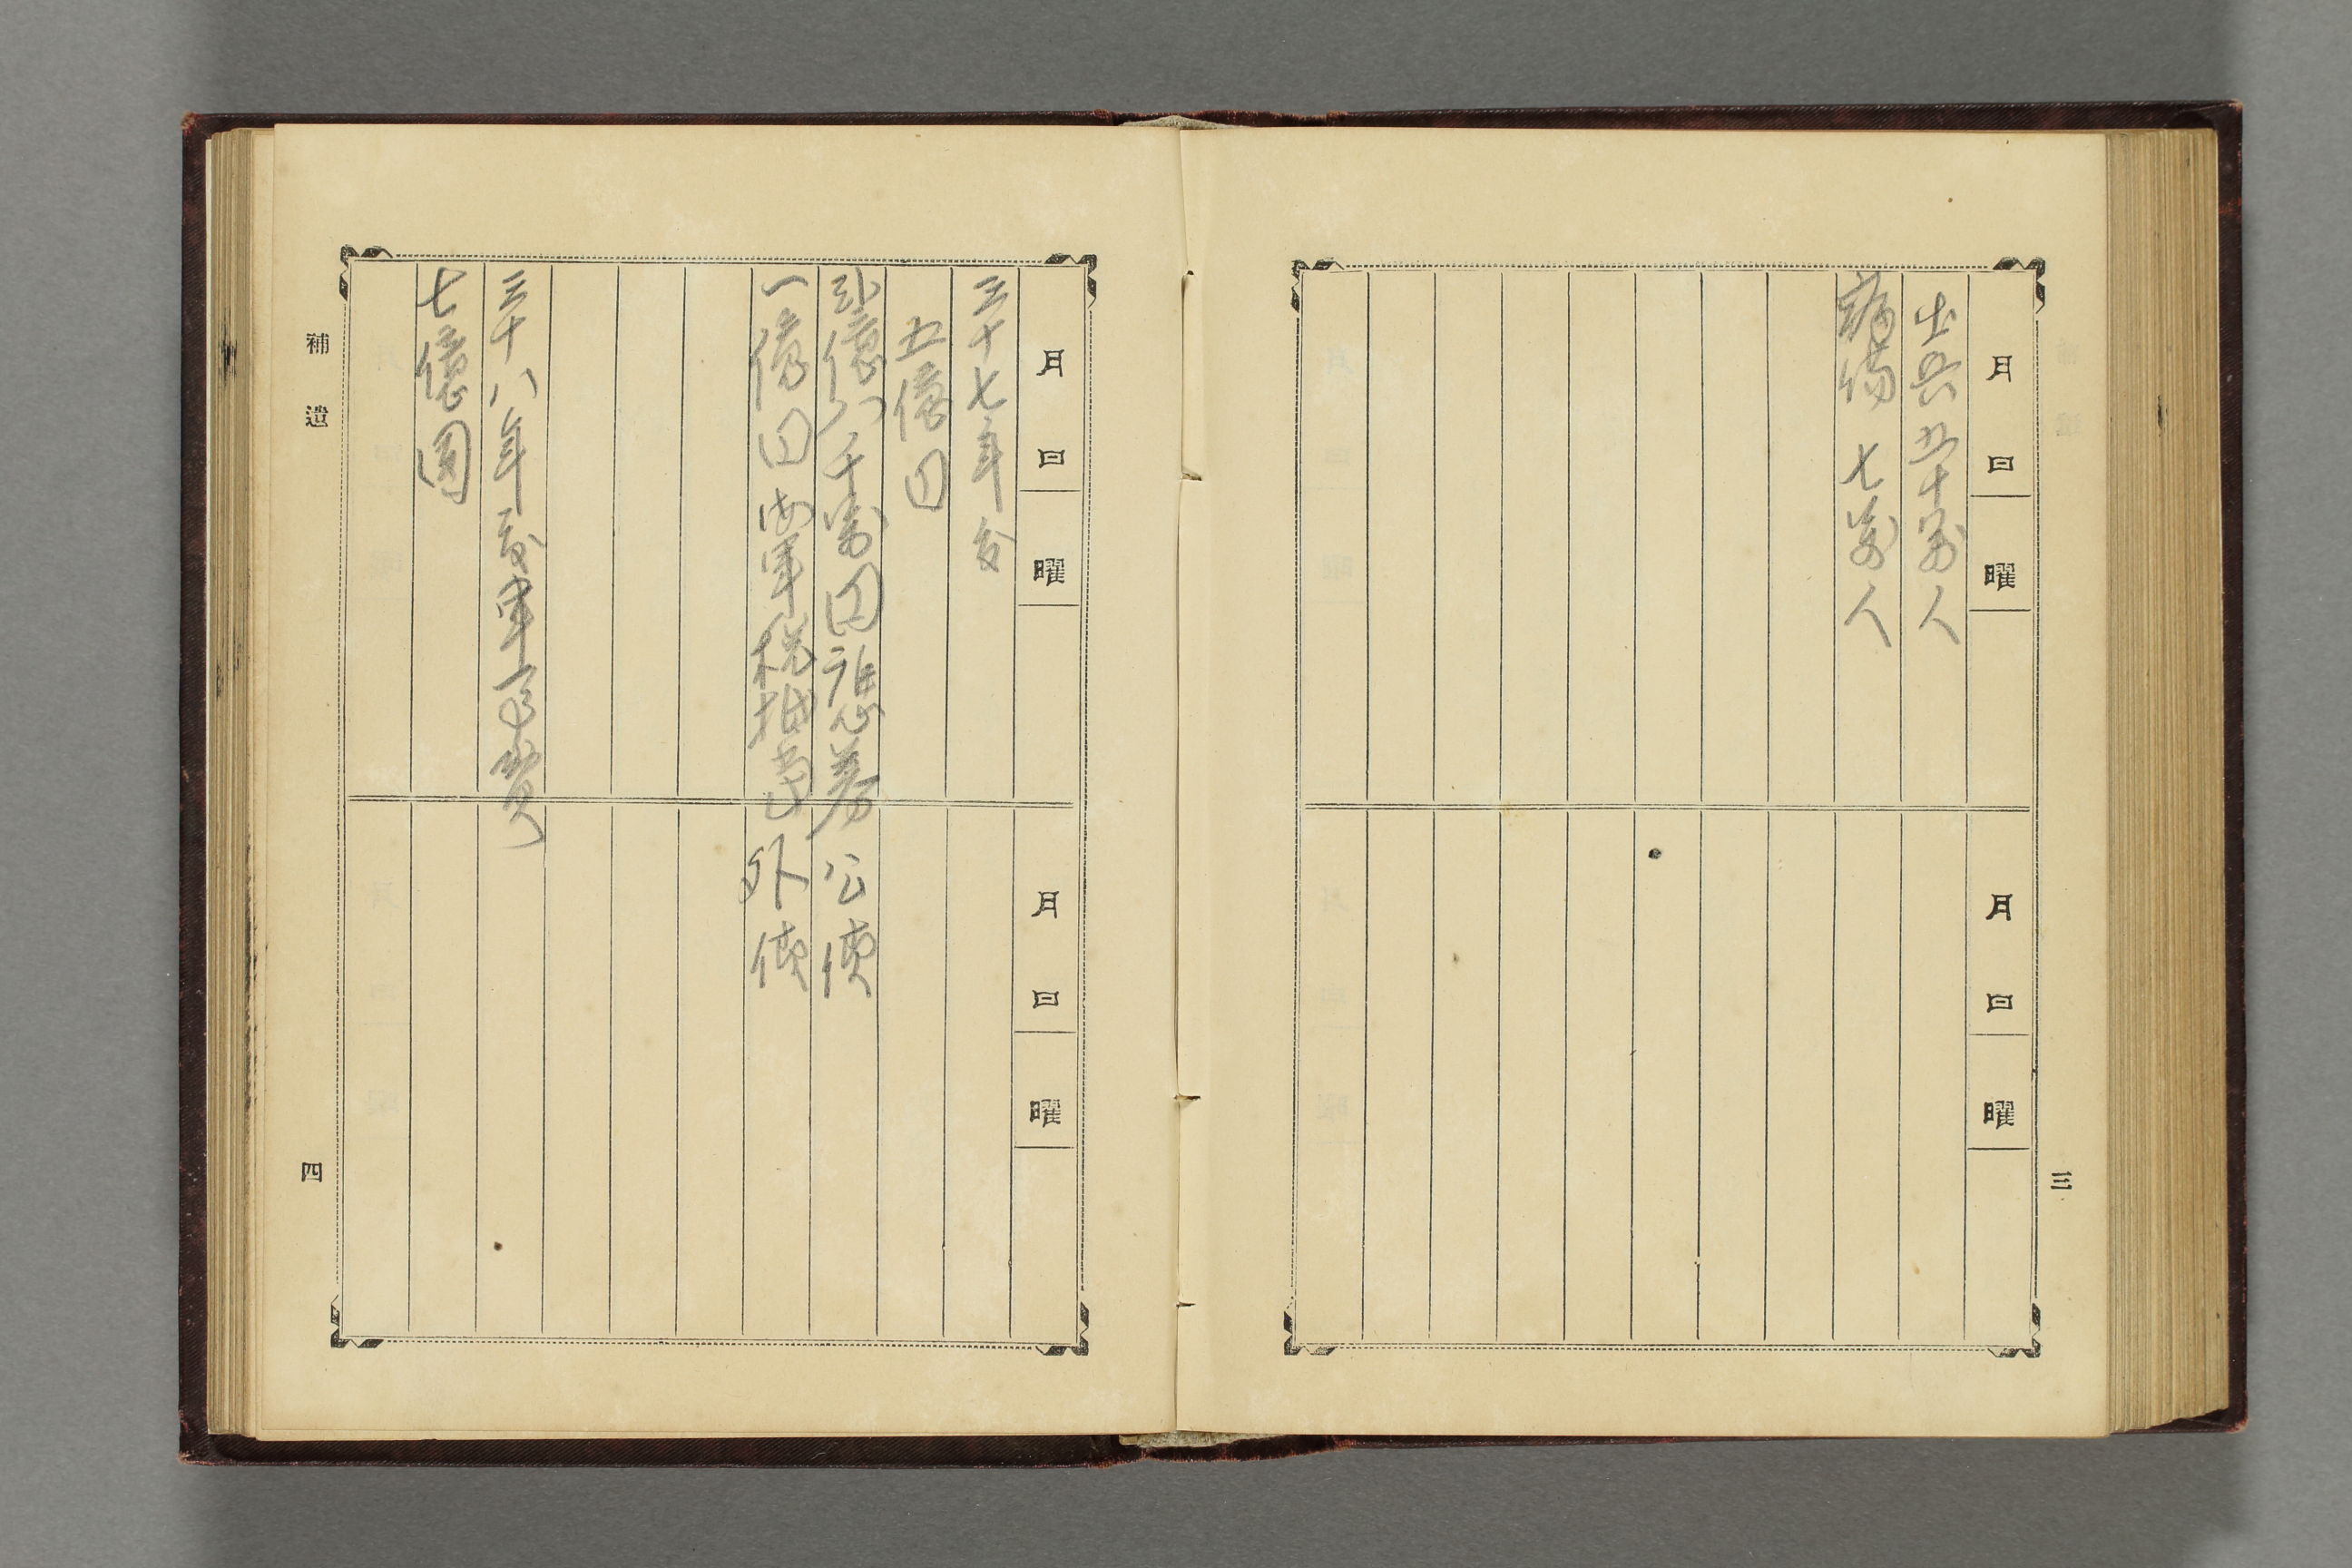 三
月 日 曜
月 日 曜
出兵五十萬人
病傷 七萬人
月 日 曜
月 日 曜
三十七年分
五億円
弐億八千萬円證券 公債
一億円海軍税抵当 外債
三十八年度軍事費
七億圓
補遺
四